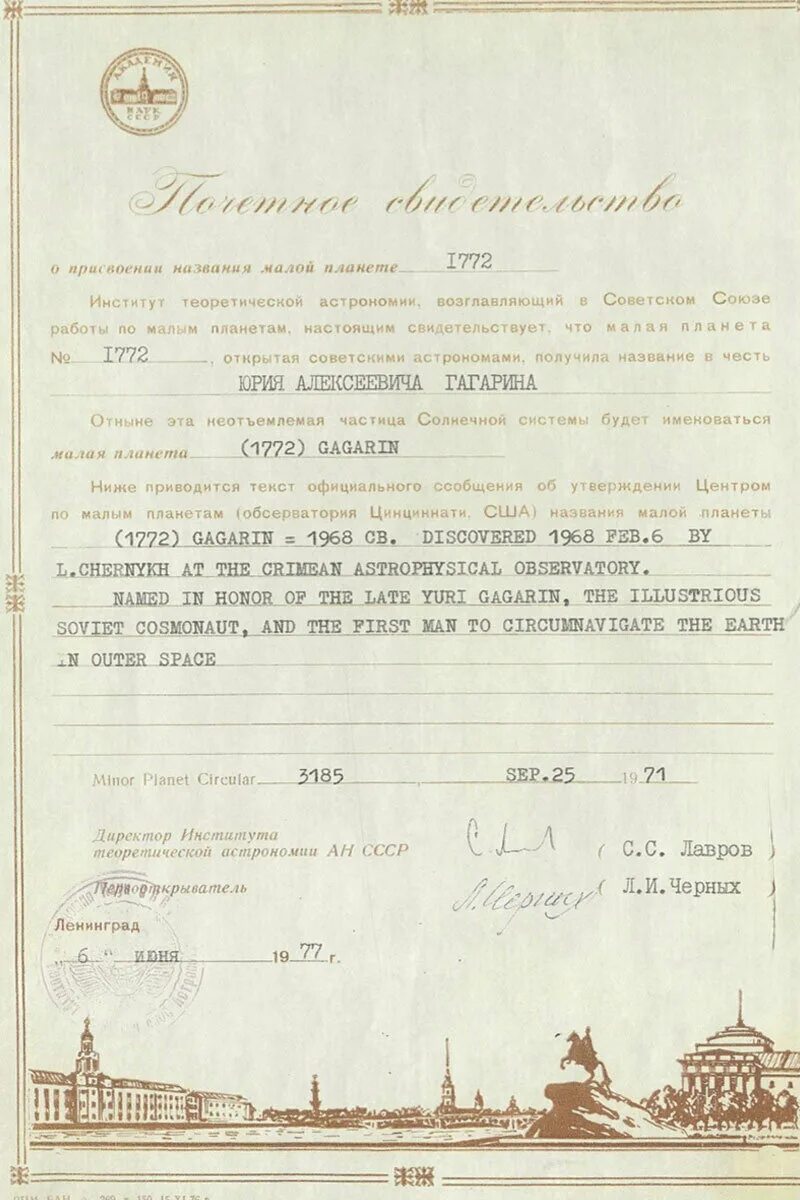 АКАДЕМИЯ
НАУК
СССР
Почетное свидетельство
о присвоении названия малой планете 1772
Институт теоретической астрономии, возглавляющий в Советском Союзе
работы по малым планетам, настоящим свидетельствует, что малая планета
№ 1772, открытая советскими астрономами, получила название в честь
ЮРИЯ АЛЕКСЕЕВИЧА ГАГАРИНА
Отныне эта неотъемлемая частица Солнечной системы будет именоваться
малая планета (1772) GAGARIN
Ниже приводится текст официального сообщения об утверждении Центром
по малым планетам (обсерватория Цинциннати, США) названия малой планеты
(1772) GAGARIN = 1968 CB. DISCOVERED 1968 FEB.6 BY
L.CHERNYKH AT THE CRIMEAN ASTROPHYSICAL OBSERVATORY.
NAMED IN HONOR OF THE LATE YURI GAGARIN, THE ILLUSTRIOUS
SOVIET COSMONAUT, AND THE FIRST MAN TO CIRCUMNAVIGATE THE EARTH
IN OUTER SPACE
Minor Planet Circular 3185, SEP.25 1971
Директор Института
теоретической астрономии АН СССР ( С.С. Лавров )
Первооткрыватель Л.Черных ( Л.И.Черных )
Ленинград
„ 6 “ июня 1977 г.